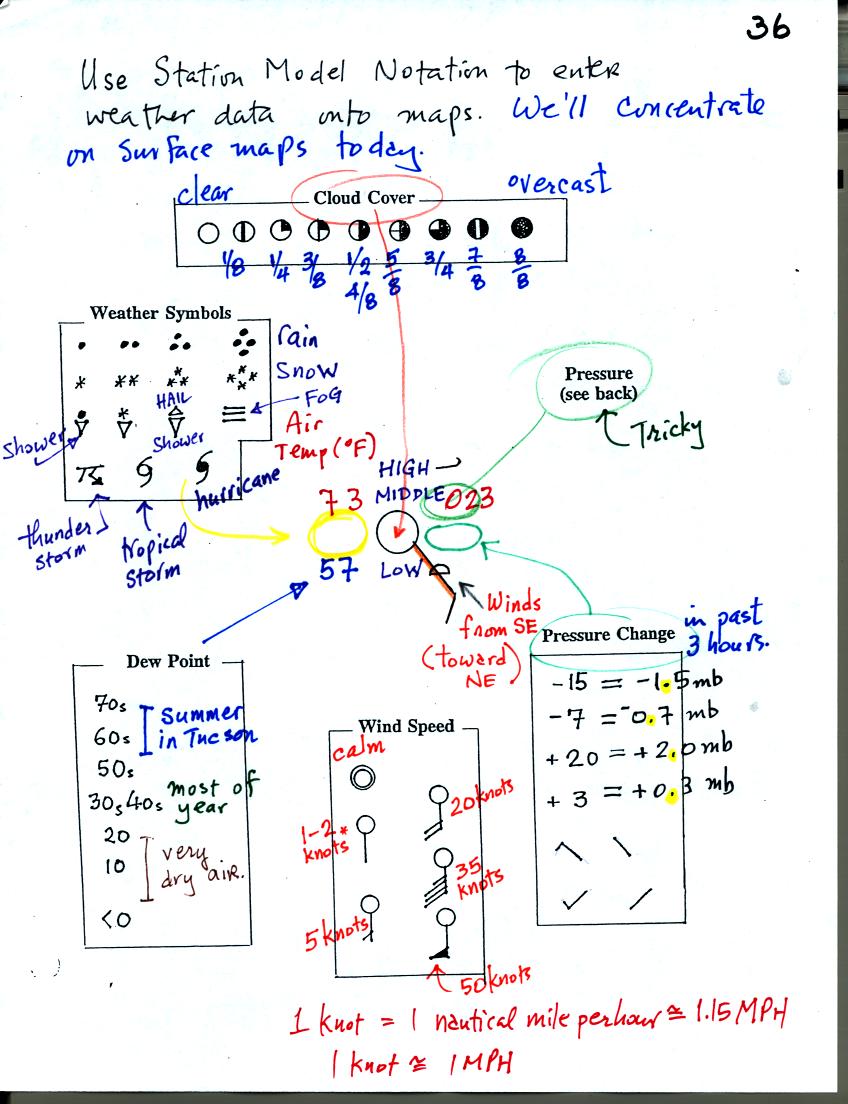 36
Use Station Model Notation to enter
weather data onto maps. We'll concentrate
on surface maps today.
clear
overcast
Cloud Cover
1/8 1/4 3/8 1/2 5/8 3/4 7/8 8/8
4/8
Weather Symbols
rain
Snow
HAIL
FOG
Shower
Shower
thunder
storm
tropical
storm
hurricane
Air
Temp (°F)
Pressure
(see back)
Tricky
HIGH
MIDDLE
LOW
73
023
57
Winds
from SE
(toward)
NE
Dew Point
70s
60s
Summer
in Tucson
50s
30s, 40s most of
year
20
10
very
dry air.
<0
Wind Speed
calm
1-2 *
knots
5 knots
20 knots
35
knots
50 knots
Pressure Change
in past
3 hours.
-15 = -1.5 mb
-7 = -0.7 mb
+20 = +2.0 mb
+3 = +0.3 mb
1 knot = 1 nautical mile per hour ≅ 1.15 MPH
1 knot ≅ 1 MPH